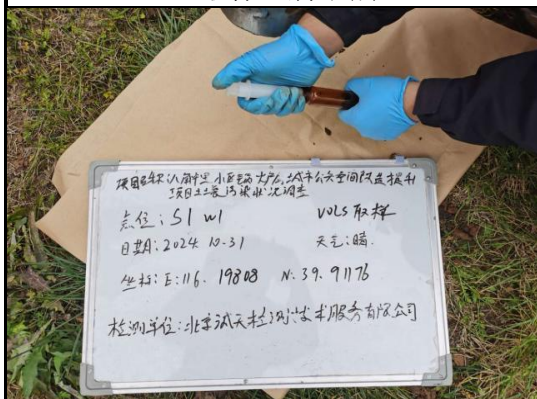 项目名称:八角中里小区锅炉房,城市公共空间改造提升
项目土壤污染状况调查
点位:S1 W1 VOCS取样
日期:2024.10.31 天气:晴.
坐标:E:116.19808 N:39.91176
检测单位:北京诚天检测技术服务有限公司